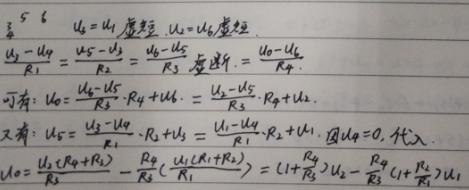 3/4 5 6
U₃=U₁ 虚短. U₂=U₆ 虚短.
(U₃-U₄)/R₁ = (U₅-U₃)/R₂ = (U₆-U₅)/R₃ 虚断. = (U₀-U₆)/R₄.
可有: U₀= (U₆-U₅)/R₃ ·R₄+U₆. = (U₂-U₅)/R₃ ·R₄+U₂.
又有: U₅= (U₃-U₄)/R₁ ·R₂+U₃ = (U₁-U₄)/R₁ ·R₂+U₁. 因U₄=0, 代入.
U₀= U₂(R₄+R₃)/R₃ - R₄/R₃ (U₁(R₁+R₂)/R₁) = (1+R₄/R₃)U₂ - R₄/R₃ (1+R₂/R₁)U₁